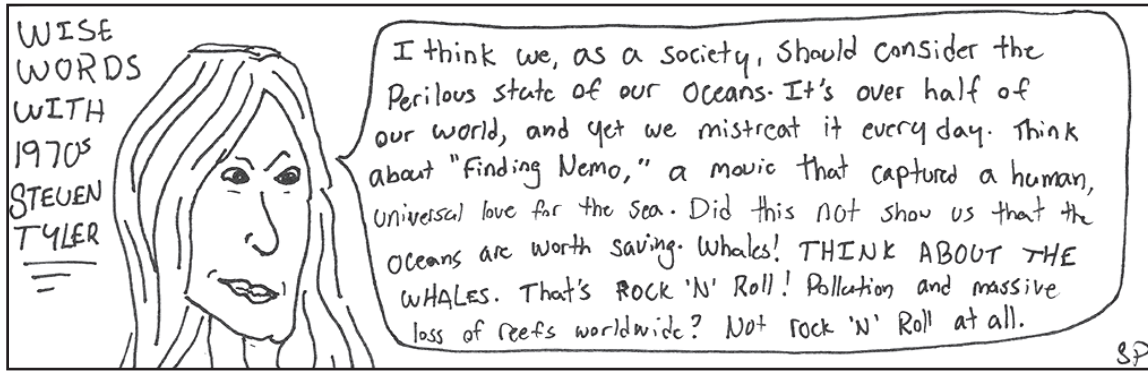 WISE
WORDS
WITH
1970s
STEVEN
TYLER
I think we, as a society, Should consider the
Perilous state of our oceans. It's over half of
our world, and yet we mistreat it every day. Think
about "Finding Nemo," a movie that captured a human,
universal love for the sea. Did this not show us that the
oceans are worth saving. Whales! THINK ABOUT THE
WHALES. That's ROCK 'N' Roll! Pollution and massive
loss of reefs worldwide? Not rock 'N' Roll at all.
SP